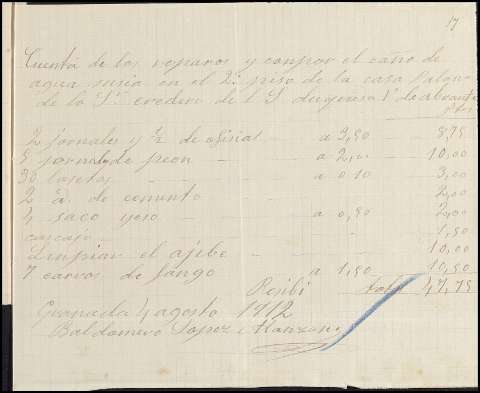 17
Cuenta de los reparos y conpor el caño de
agua susia en el 2º piso de la casa
de la Sra erederu de
Ptas
2 jornales y ½ de ofisial a 3,50 8,75
5 jornal de peon a 2,00 10,00
30 losetas a 0 10 3,00
2 @. de cemento 2,00
4 saco yeso a 0,50 2,00
cascajo 1,50
Linpiar el ajibe 10,00
7 carros de fango a 1,50 10,50
Resibi total 47,75
Granada 4 agosto 1912
Baldomero Lopez Manzano